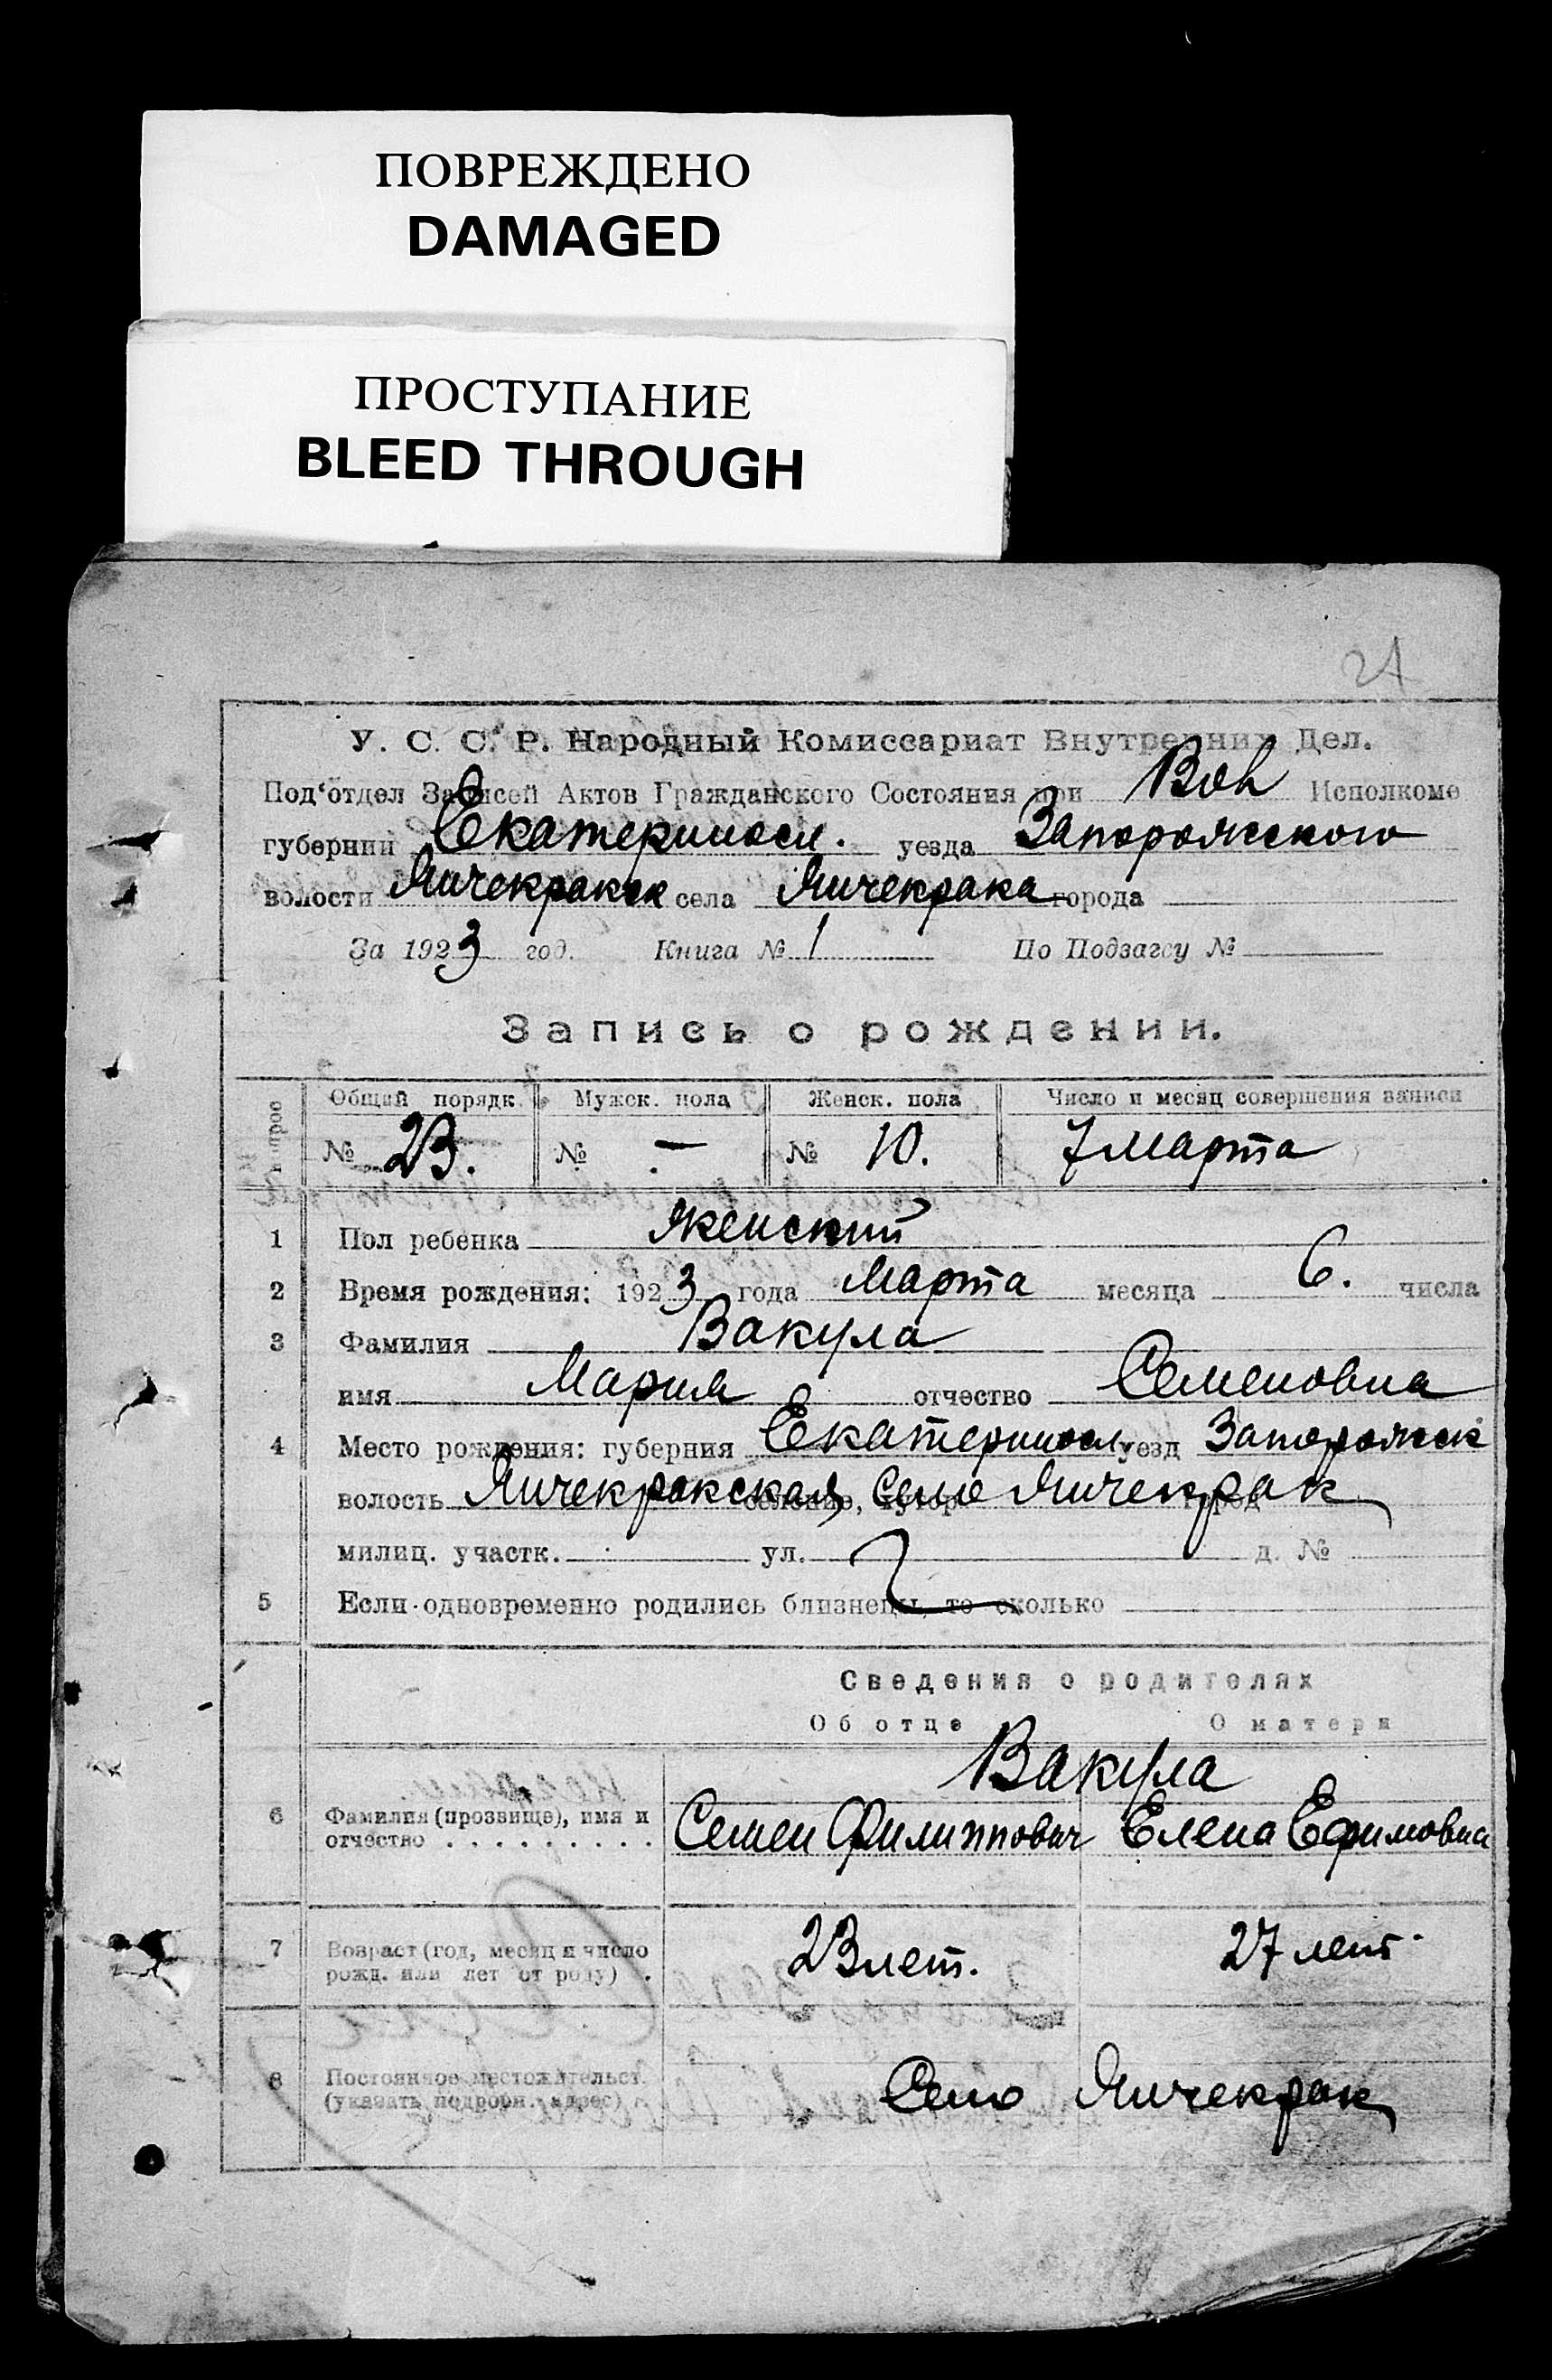 ПОВРЕЖДЕНО
DAMAGED
ПРОСТУПАНИЕ
BLEED THROUGH
У. С. С. Р. Народный Комиссариат Внутренних Дел.
Под'отдел Записей Актов Гражданского Состояния при Вол Исполкоме
губернии Екатериносл. уезда Запорожского
волости Янчекракск села Янчекрака города
За 1923 год. Книга № 1 По Подзагсу №
Запись о рождении.
Общий порядк. Мужск. пола Женск. пола Число и месяц совершения записи
№ 23. № — № 10. 7 Марта
1 Пол ребенка Женский
2 Время рождения: 1923 года Марта месяца 6. числа
3 Фамилия Вакула
имя Мария отчество Семеновна
4 Место рождения: губерния Екатеринославл. уезд Запорожск
волость Янчекракская, селение, хутор Село Янчекрак город
милиц. участк. ул. д. №
5 Если одновременно родились близнецы, то сколько
Сведения о родителях
Об отце О матери
Вакула
6 Фамилия (прозвище), имя и
отчество . . . . . . . . . Семен Филиппович Елена Ефимовна
7 Возраст (год, месяц и число
рожд. или лет от роду) . 23 лет. 27 лет.
8 Постоянное местожительст.
(указать подробн. адрес) Село Янчекрак